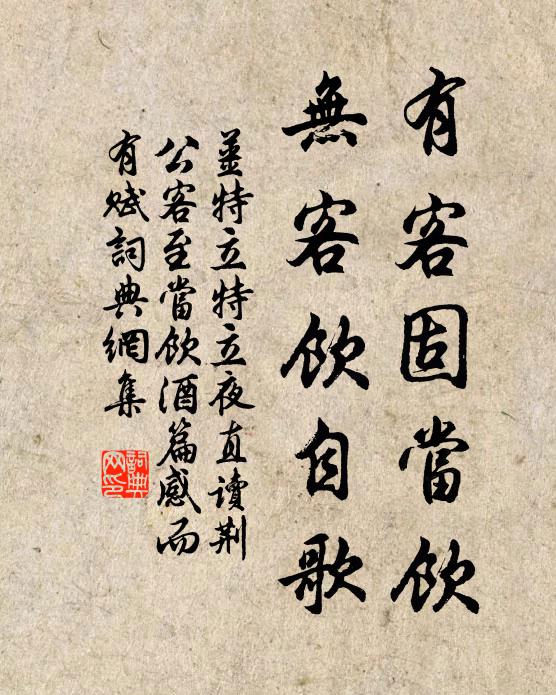 有客固當飲
無客飲自歌
姜特立特立夜直讀荆
公客至當飲酒篇感而
有賦詞典網集
詞典网印